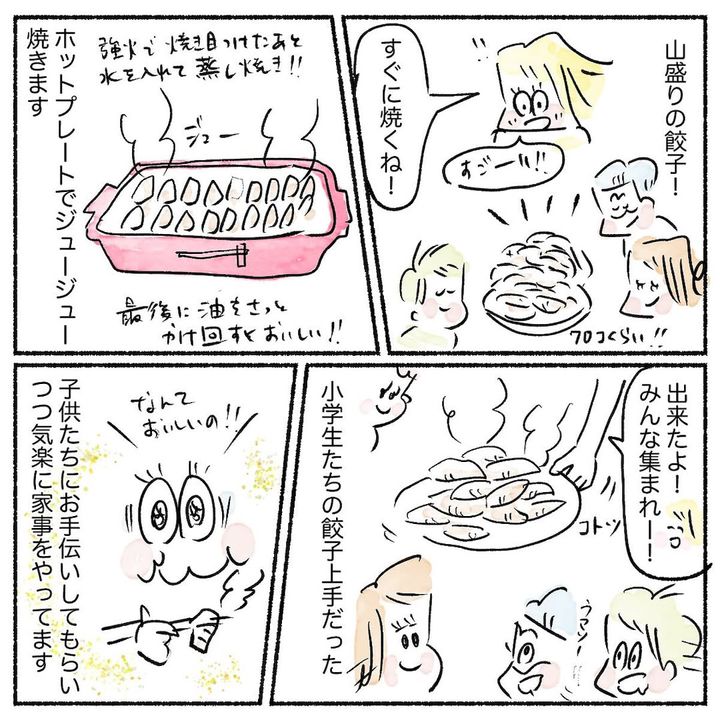 山盛りの餃子！
すぐに焼くね！
すご〜い!!
70コくらい!!
強火で焼き目つけたあと
水を入れて蒸し焼き!!
ジュー
ホットプレートでジュージュー
焼きます
最後に油をさっと
かけ回すとおいしい!!
出来たよ！
みんな集まれー！
コトッ
ウマソー
小学生たちの餃子上手だった
なんて
おいしいの!!
子供たちにお手伝いしてもらい
つつ気楽に家事をやってます